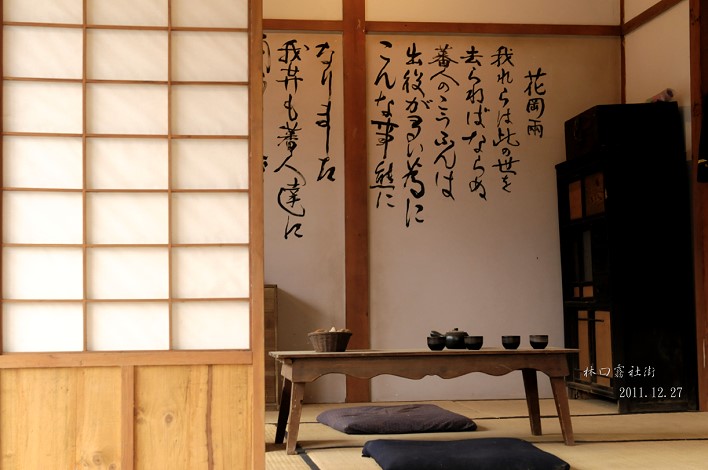 花岡両
我れらは此の世を
去らねばならぬ
蕃人のこうふんは
出役が多い為に
こんな事態に
なりました
我等も蕃人達に
林口霧社街
2011.12.27